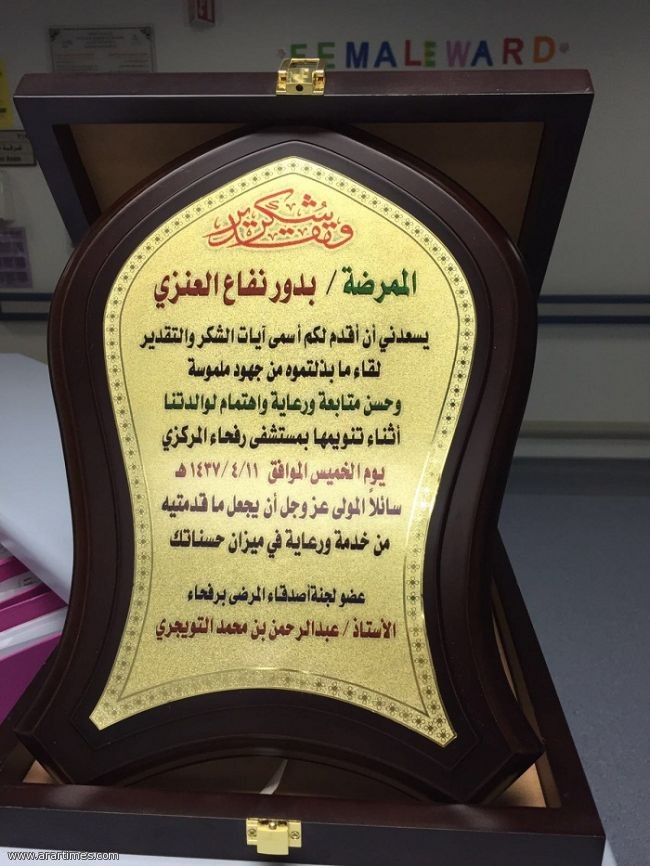 FEMALE WARD
شكر وتقدير
الممرضة / بدور نفاع العنزي
يسعدني أن أقدم لكم أسمى آيات الشكر والتقدير
لقاء ما بذلتموه من جهود ملموسة
وحسن متابعة ورعاية واهتمام لوالدتنا
أثناء تنويمها بمستشفى رفحاء المركزي
يوم الخميس الموافق ١٤٣٧/٤/١١ هـ
سائلاً المولى عز وجل أن يجعل ما قدمتيه
من خدمة ورعاية في ميزان حسناتك
عضو لجنة أصدقاء المرضى برفحاء
الأستاذ / عبدالرحمن بن محمد التويجري
www.arartimes.com